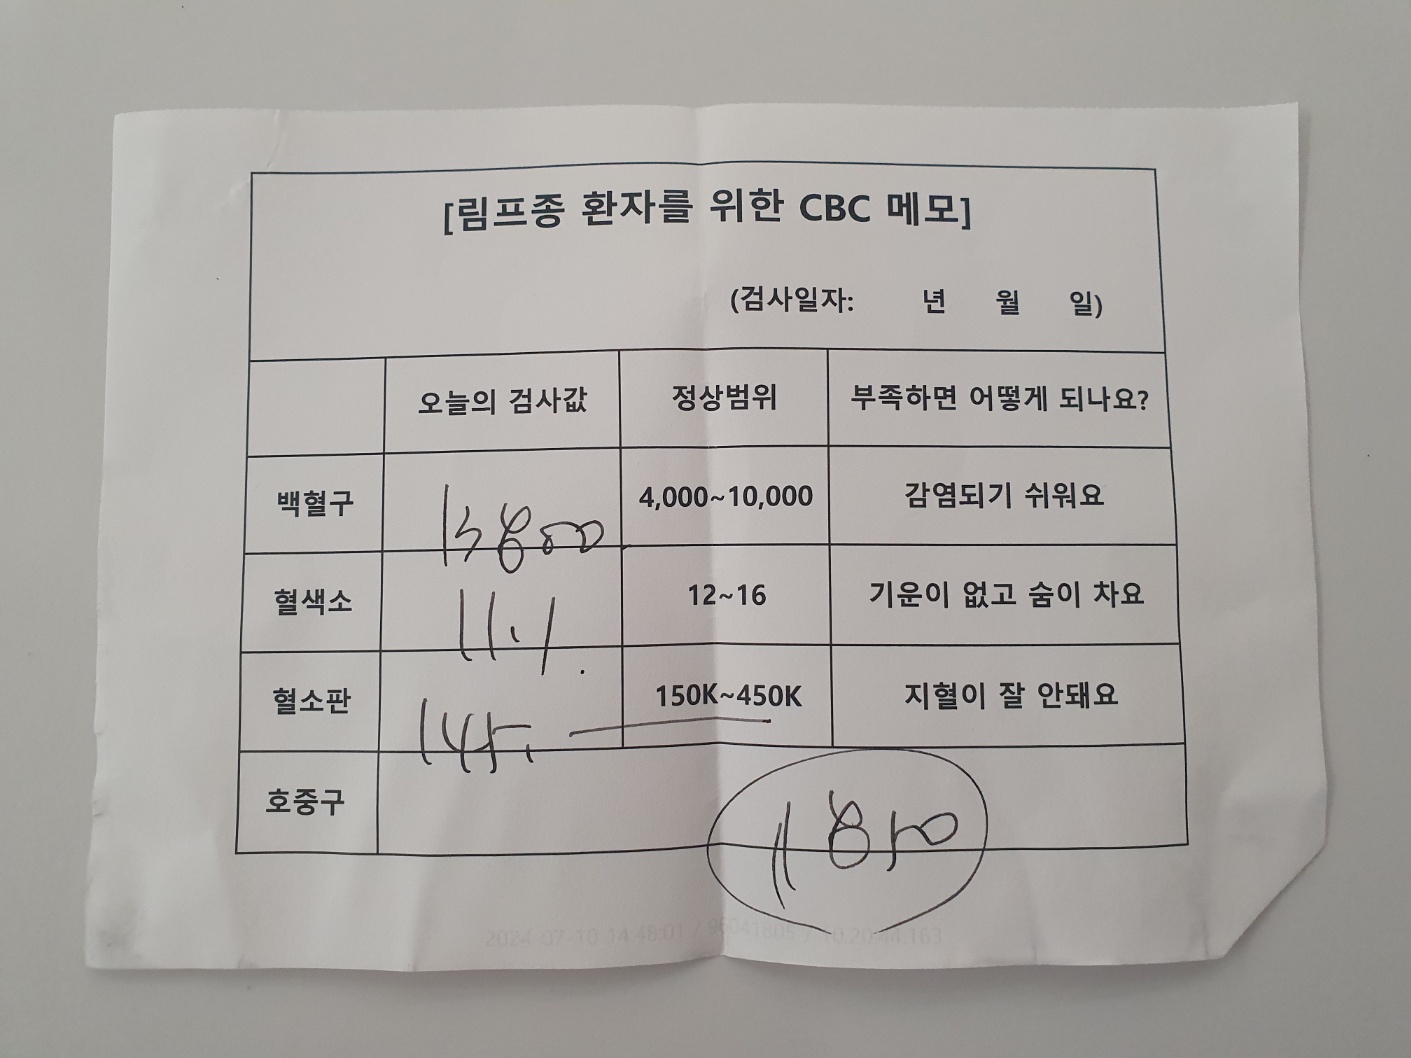 [림프종 환자를 위한 CBC 메모]
(검사일자: 년 월 일)
오늘의 검사값 정상범위 부족하면 어떻게 되나요?
백혈구 13800 4,000~10,000 감염되기 쉬워요
혈색소 11.1 12~16 기운이 없고 숨이 차요
혈소판 145 150K~450K 지혈이 잘 안돼요
호중구 11850
2024-07-10 14:48:01 /